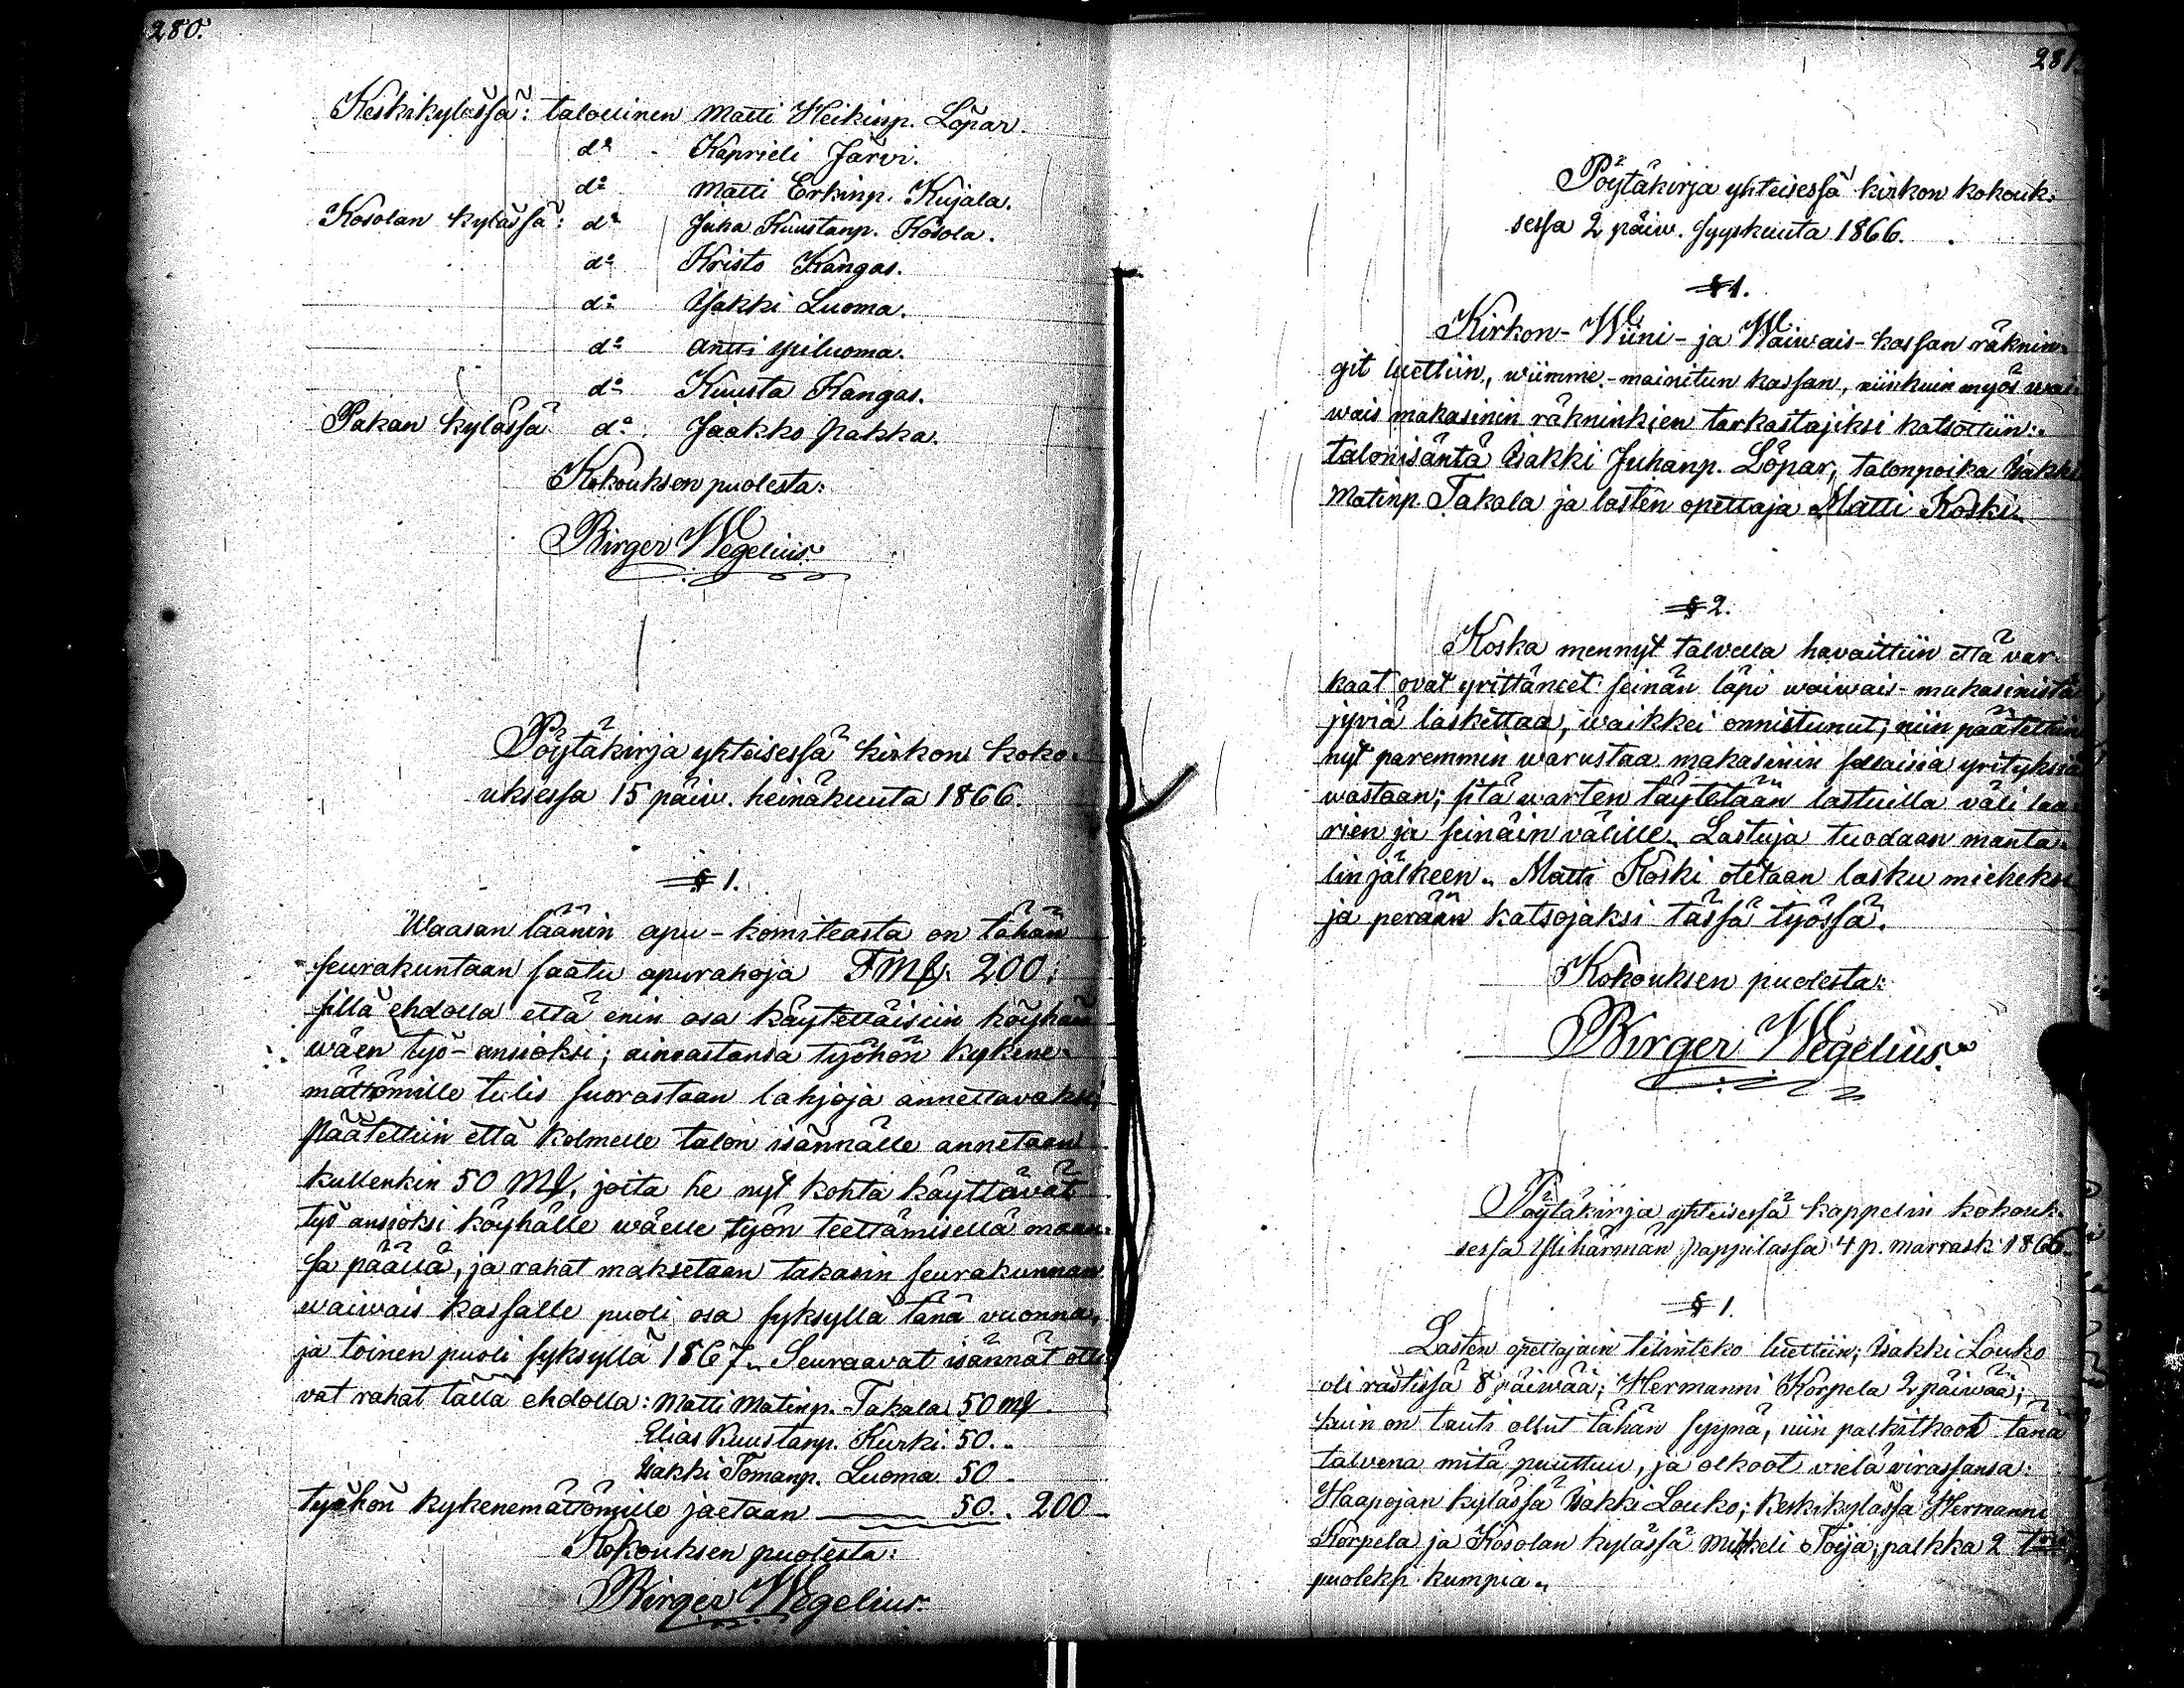 280.
Keskikylässä: talollinen Matti Heikinp. Löpar.
d:o Kaprieli Järvi.
d:o Matti Erkinp. Kujala.
Kosolan kylässä: d:o Juha Kuustanp. Kosola.
d:o Kristo Kangas.
d:o Isakki Luoma.
d:o Antti Yliluoma.
d:o Kuusta Kangas.
Pakan kylässä d:o Jaakko Pakka.
Kokouksen puolesta:
Birger Wegelius.
Pöytäkirja yhteisessä kirkon koko-
uksessa 15 päiw. heinäkuuta 1866.
§ 1.
Waasan läänin apu-komiteasta on tähän
seurakuntaan saatu apurahoja FMk. 200:
sillä ehdolla että enin osa käytettäisiin köyhän
wäen työ-ansioksi; ainoastansa työhön kykene-
mättömille tulis suorastaan lahjoja annettavaksi;
Päätettiin että kolmelle talon isännälle annetaan
kullenkin 50 Mk, joita he nyt kohta käyttävät
työ ansioksi köyhälle wäelle työn teettämisellä maan-
sa päällä, ja rahat maksetaan takasin seurakunnan
waiwais kassalle puoli osa syksyllä tänä vuonna,
ja toinen puoli syksyllä 1867. Seuraavat isännät otti-
vat rahat tällä ehdolla: Matti Matinp. Takala 50 Mk.
Elias Kuustanp. Kurki. 50.
Isakki Tomanp. Luoma 50
työhön kykenemättömille jaetaan 50. 200
Kokouksen puolesta:
Birger Wegelius.
281.
Pöytäkirja yhteisessä kirkon kokouk-
sessa 2 päiw. syyskuuta 1866.
§ 1.
Kirkon- Wiini- ja Waiwais-kassan räknin-
git luettiin, wiimme-mainitun kassan, niinkuin myös wai-
wais makasinin räkninkien tarkastajiksi katsottiin:
talonisäntä Isakki Juhanp. Löpar, talonpoika Isakki
Matinp. Takala ja lasten opettaja Matti Koski.
§ 2.
Koska mennyt talvella havaittiin että var-
kaat ovat yrittäneet seinän läpi waiwais-makasinista
jyviä laskettaa, waikkei onnistunut; niin päätettiin
nyt paremmin warustaa makasinin sellaisia yrityksiä
wastaan; sitä warten täytetään lastuilla väli laa-
rien ja seinäin välille. Lastuja tuodaan manta-
lin jälkeen. Matti Koski otetaan lasku mieheksi
ja perään katsojaksi tässä työssä.
Kokouksen puolesta:
Birger Wegelius.
Pöytäkirja yhteisessä kappelin kokouk-
sessa Ylihärmän pappilassa 4 p. marrask. 1866.
§ 1.
Lasten opettajain tilinteko luettiin; Isakki Louko
oli rästissä 8 päiwää; Hermanni Korpela 2 päiwää;
kuin on tauti ollut tähän syynä, niin palkitkoot tänä
talvena mitä puuttuu, ja olkoot vielä virassansa:
Haapojan kylässä Isakki Louko; Keskikylässä Hermanni
Korpela ja Kosolan kylässä Mikkeli Toija, palkka 2
puoleksi kumpia.